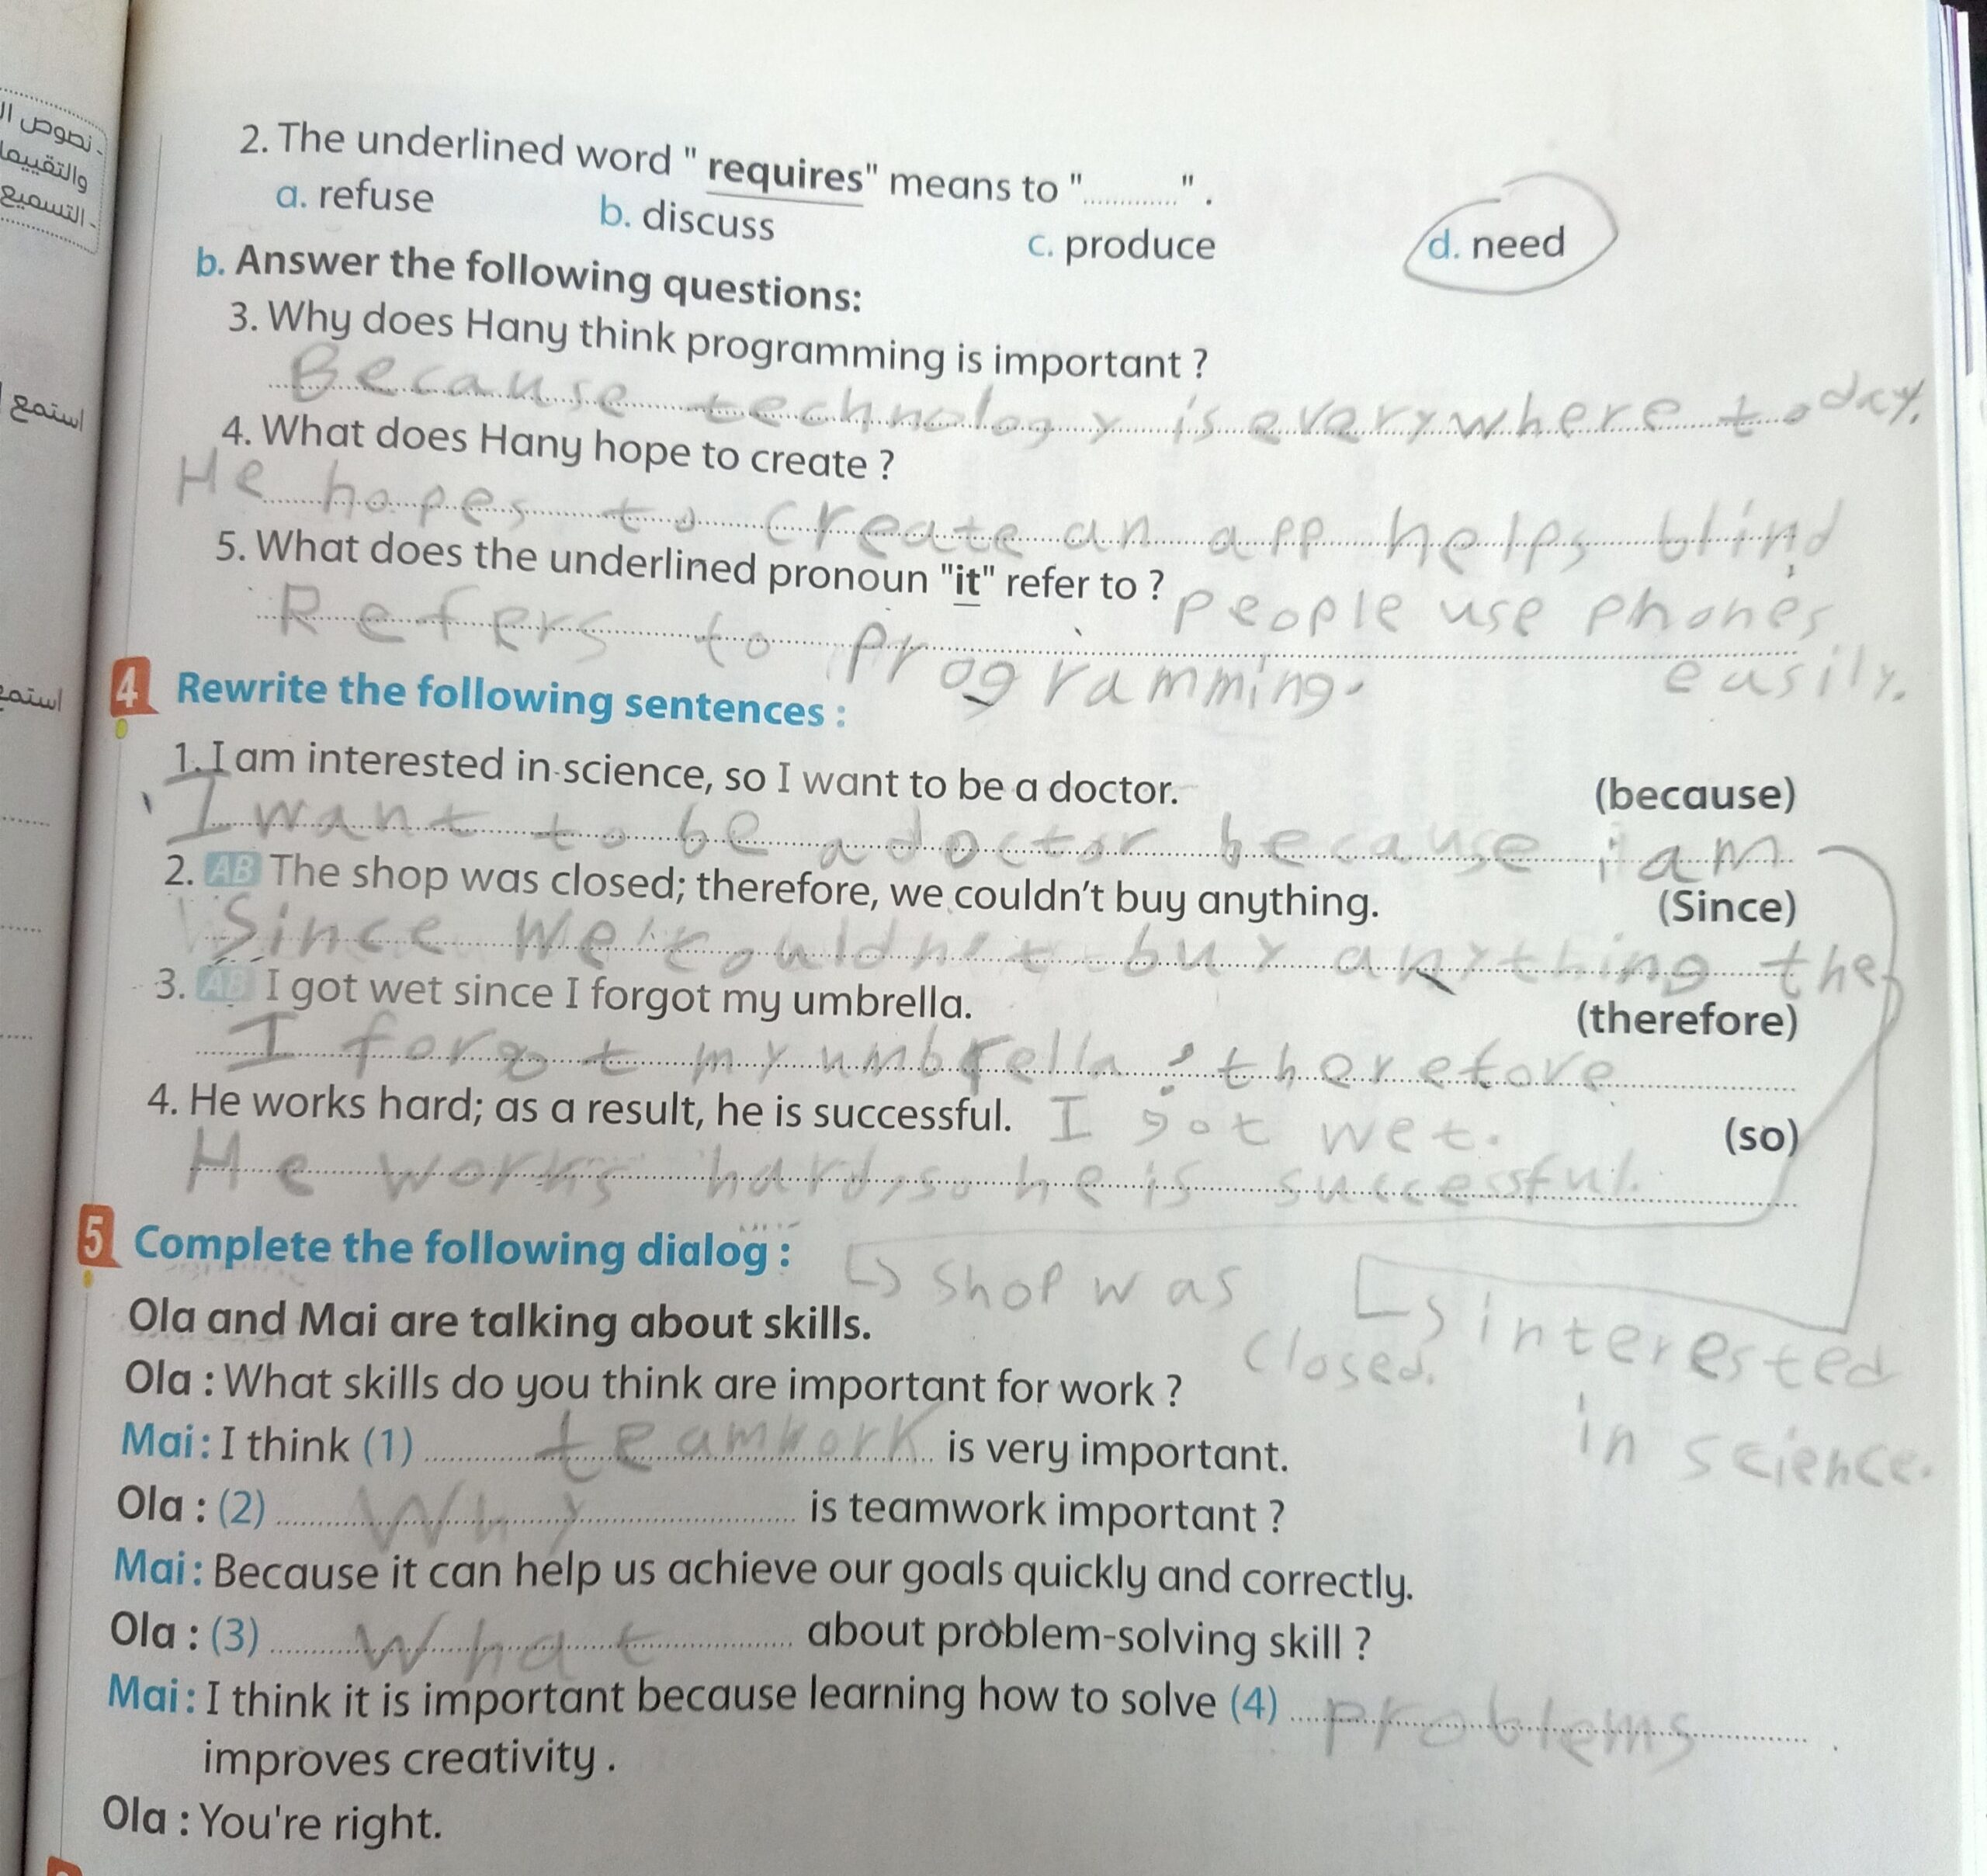 - نصوص ال
والتقييما
- التسميع
استمع
استمع
2. The underlined word " requires" means to ".............." .
a. refuse b. discuss c. produce d. need
b. Answer the following questions:
3. Why does Hany think programming is important ?
Because technology is everywhere today.
4. What does Hany hope to create ?
He hopes to create an app helps blind
5. What does the underlined pronoun "it" refer to ?
people use phones
easily.
Refers to programming.
4 Rewrite the following sentences :
1. I am interested in science, so I want to be a doctor. (because)
I want to be a doctor because i am
2. AB The shop was closed; therefore, we couldn't buy anything. (Since)
Since we couldn't buy anything the
3. AB I got wet since I forgot my umbrella. (therefore)
I forgot my umbrella ; therefore
4. He works hard; as a result, he is successful. (so)
I got wet.
He works hard, so he is successful.
5 Complete the following dialog :
shop was
closed.
interested
in science.
Ola and Mai are talking about skills.
Ola : What skills do you think are important for work ?
Mai : I think (1) teamwork is very important.
Ola : (2) Why is teamwork important ?
Mai : Because it can help us achieve our goals quickly and correctly.
Ola : (3) What about problem-solving skill ?
Mai : I think it is important because learning how to solve (4) problems .
improves creativity .
Ola : You're right.